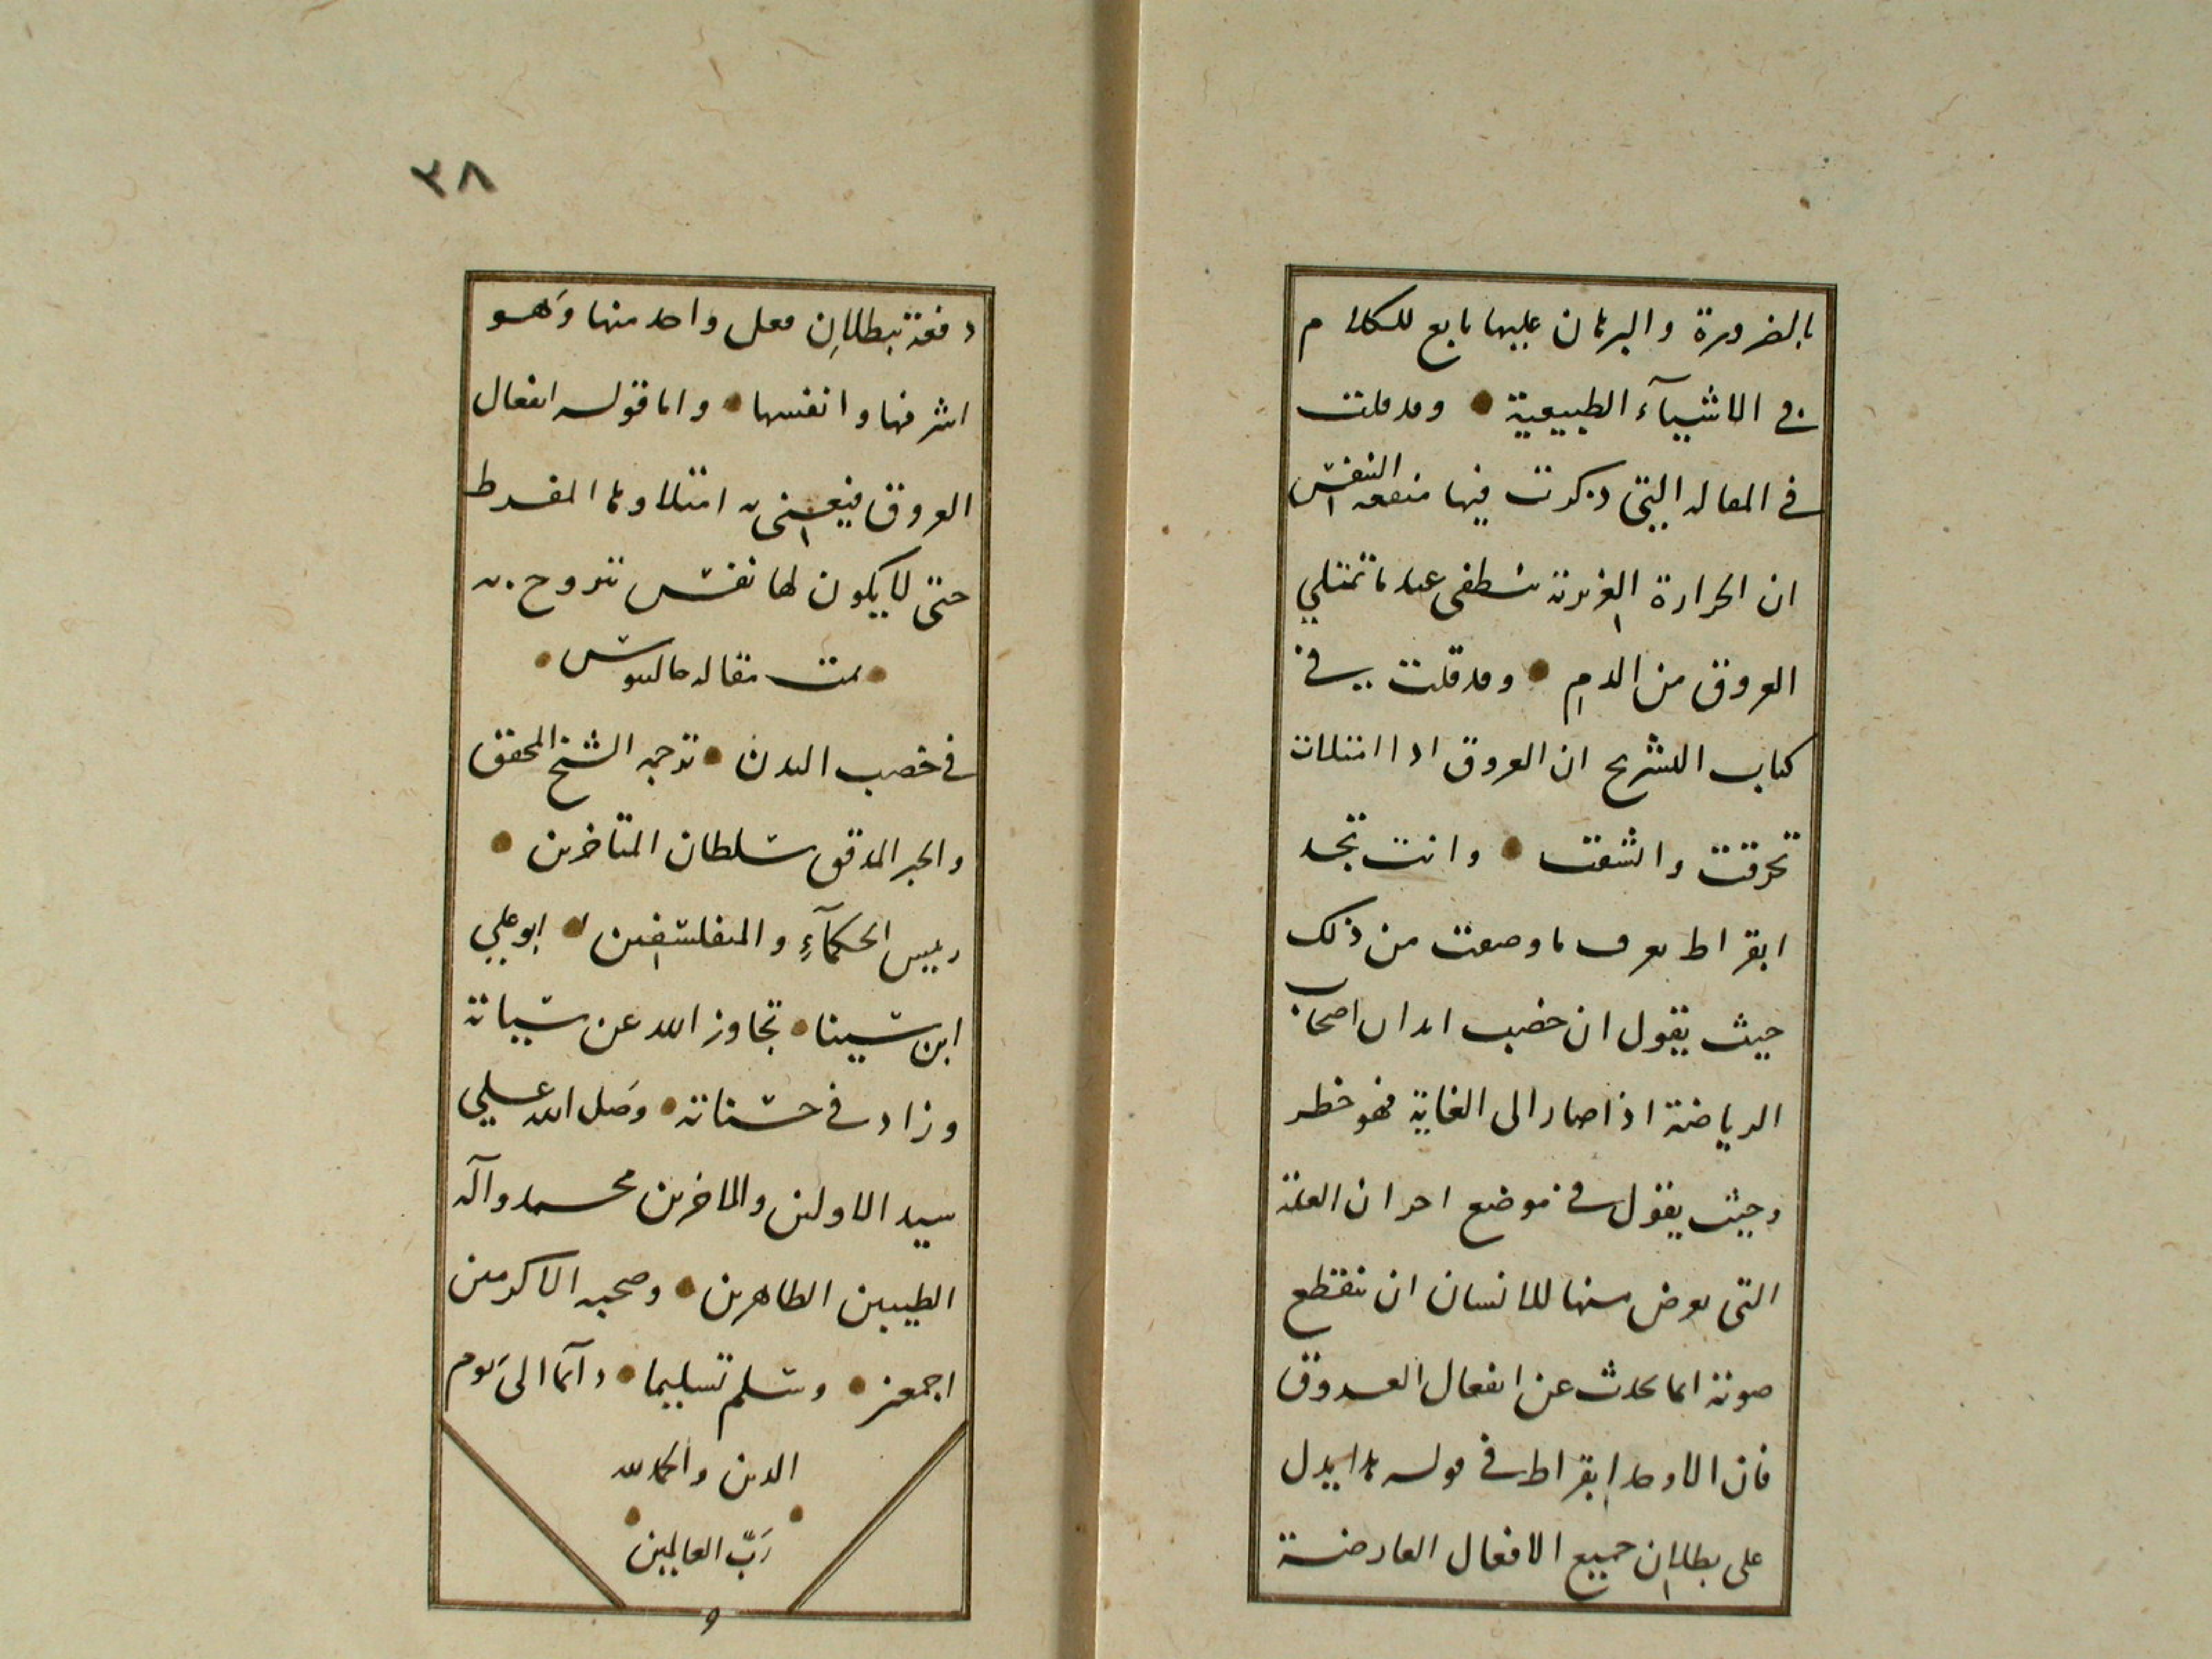 بالضرورة والبرهان عليها تابع للكلام
في الاشيآء الطبيعية وقد قلت
في المقاله التي ذكرت فيها منفعة التنفس
ان الحرارة الغريزية تنطفى عند ما تمتلي
العروق من الدم وقد قلت في
كتاب التشريح ان العروق اذا امتلات
تخرقت وانشقت وانت تجد
ابقراط يعرف ما وصفت من ذلك
حيث يقول ان خصب ابدان اصحاب
الرياضة اذا صار الى الغاية فهو خطر
وحيث يقول في موضع اخر ان العلة
التي يعرض منها للانسان ان تنقطع
صوته انما يحدث عن افعال العروق
فان الاوحد ابقراط في قوله هذا يدل
على بطلان جميع الافعال العارضة
٣٨
دفعة ببطلان فعل واحد منها وهو
اشرفها وانفسها واما قوله افعال
العروق فيعنى به امتلاوها المفرط
حتى لا يكون لها نفس تتروح به
تمت مقاله جالينوس
في خصب البدن ترجمه الشيخ المحقق
والحبر المدقق سلطان المتاخرين
رييس الحكمآء والمتفلسفين ابو علي
ابن سينا تجاوز الله عن سيياته
وزاد في حسناته وصل الله علي
سيد الاولين والاخرين محمد وآله
الطيبين الطاهرين وصحبه الاكرمين
اجمعين وسلم تسليما دآئما الى يوم
الدين والحمد لله
رَبّ العالمين